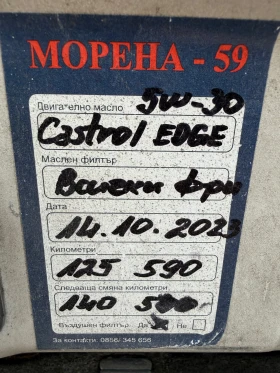 МОРЕНА - 59
Двигателно масло 5W-30
Castrol EDGE
Маслен филтър
Всички фри
Дата
14.10.2023
Километри
125 590
Следваща смяна километри
140 500
Въздушен филтър Да Не
За контакти: 0856/ 345 656